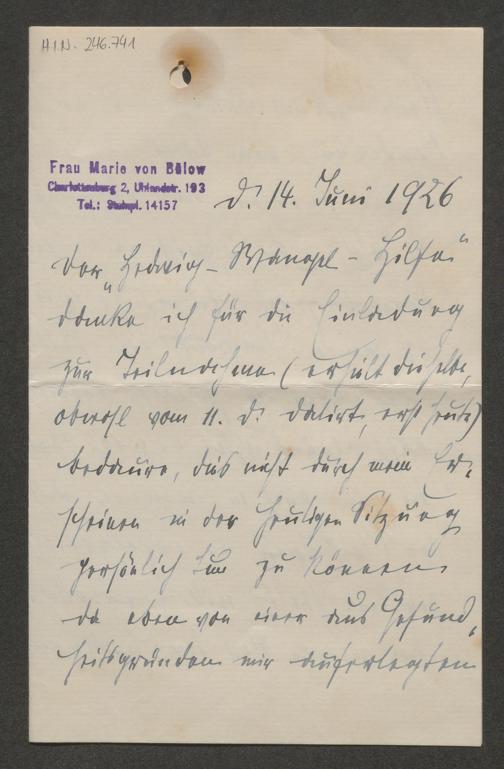 H.I.N. 246.741
Frau Marie von Bülow
Charlottenburg 2, Uhlandstr. 193
Tel.: Steinpl. 14157
d. 14. Juni 1926
Der „Hedwig-Wangel-Hilfe“
danke ich für die Einladung
zur Teilnahme (erhielt dieselbe,
obwohl vom 11. d. datirt, erst heute)
bedaure, dies nicht durch mein Er-
scheinen in der heutigen Sitzung
persönlich tun zu können
da eben von einer aus Gesund-
heitsgründen mir auferlegten